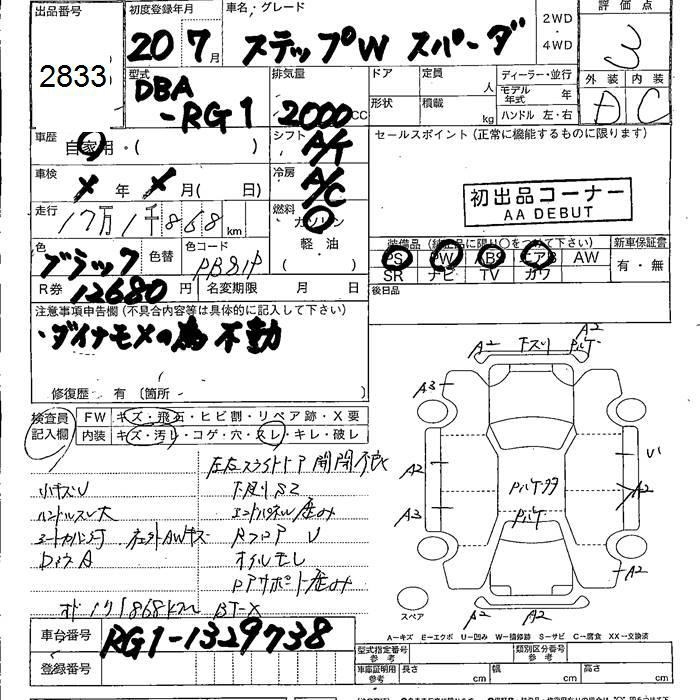 出品番号
2833
初度登録年月
20 7月
車名・グレード
ステップW スパーダ
2WD
4WD
評価点
3
外装 内装
D C
型式
DBA
-RG1
排気量
2000 CC
ドア
定員 人
形状
積載 kg
ディーラー・並行
モデル年式 年
ハンドル 左・右
車歴
自家用・( )
シフト
A/T
セールスポイント (正常に機能するものに限ります)
初出品コーナー
AA DEBUT
車検
年 月( 日)
冷房
A/C
走行
17万1千868 km
燃料
ガソリン
軽・油
( )
色
ブラック
色替
色コード
PB81P
装備品 (純正品に限り〇をつけて下さい)
PS PW ABS エアB AW
SR ナビ TV カワ
新車保証書
有・無
R券 12680 円
名変期限 月 日
後日品
注意事項申告欄 (不具合内容等は具体的に記入して下さい)
・ダイナモメの為不動
修復歴・有 〔箇所 〕
検査員
記入欄
FW キズ・飛石・ヒビ割・リペア跡・X要
内装 キズ・汚レ・コゲ・穴・スレ・キレ・破レ
左右スライドドア開閉不良
小キズU
ハンドルスレ大
オイルモレ
BT-X
A2
A2
A3
A2
A3
A2
A2
A2
A2
スペア
A-キズ E-エクボ U-凹み W-補修跡 S-サビ C-腐食 XX-交換済
車台番号
RG1-1329738
登録番号
型式指定番号
参考
類別区分番号
参考
車庫証明用
参考
長さ cm
幅 cm
高さ cm